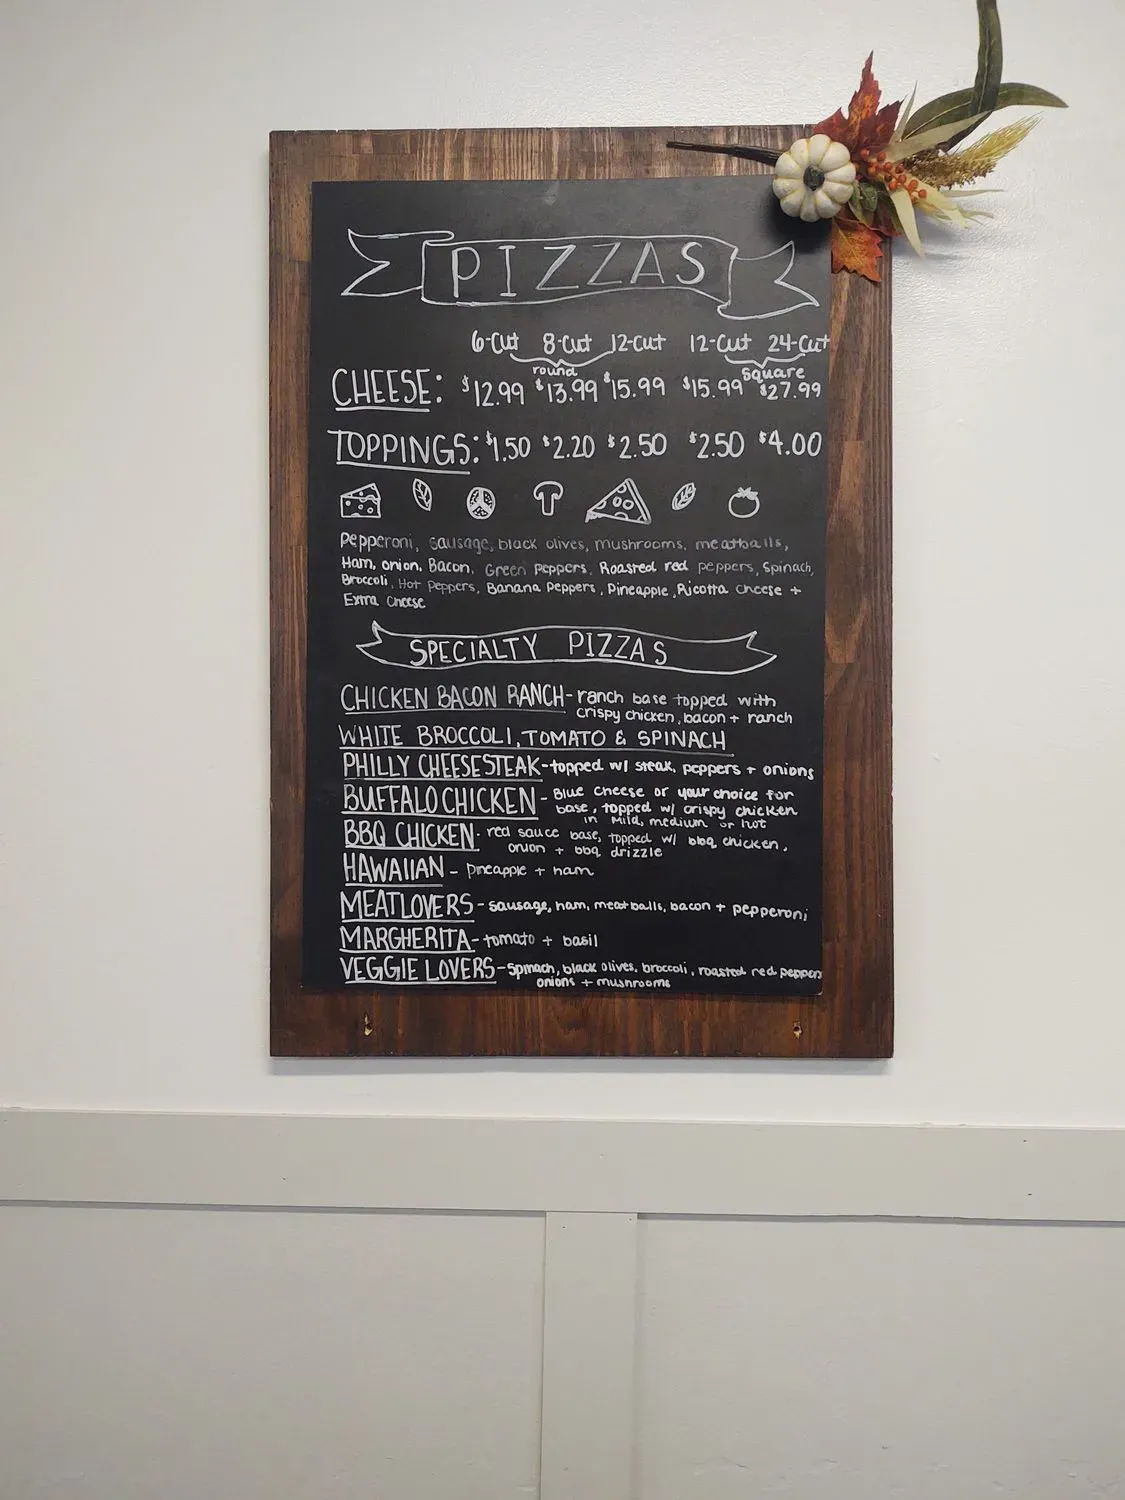 PIZZAS
6-Cut 8-Cut 12-Cut 12-Cut 24-Cut
round square
CHEESE: $12.99 $13.99 $15.99 $15.99 $27.99
TOPPINGS: $1.50 $2.20 $2.50 $2.50 $4.00
Pepperoni, sausage, black olives, mushrooms, meatballs,
Ham, onion, Bacon, Green Peppers, Roasted red peppers, Spinach,
Broccoli, Hot Peppers, Banana Peppers, Pineapple, Ricotta cheese +
Extra Cheese
SPECIALTY PIZZAS
CHICKEN BACON RANCH- ranch base topped with
crispy chicken, bacon + ranch
WHITE BROCCOLI, TOMATO & SPINACH
PHILLY CHEESESTEAK-topped w/ steak, peppers + onions
BUFFALO CHICKEN- Blue cheese or your choice for
base, topped w/ crispy chicken
in mild, medium or hot
BBQ CHICKEN- red sauce base, topped w/ bbq chicken,
onion + bbq drizzle
HAWAIIAN - pineapple + ham
MEATLOVERS - sausage, ham, meatballs, bacon + pepperoni
MARGHERITA- tomato + basil
VEGGIE LOVERS- Spinach, black olives, broccoli, roasted red peppers
onions + mushrooms